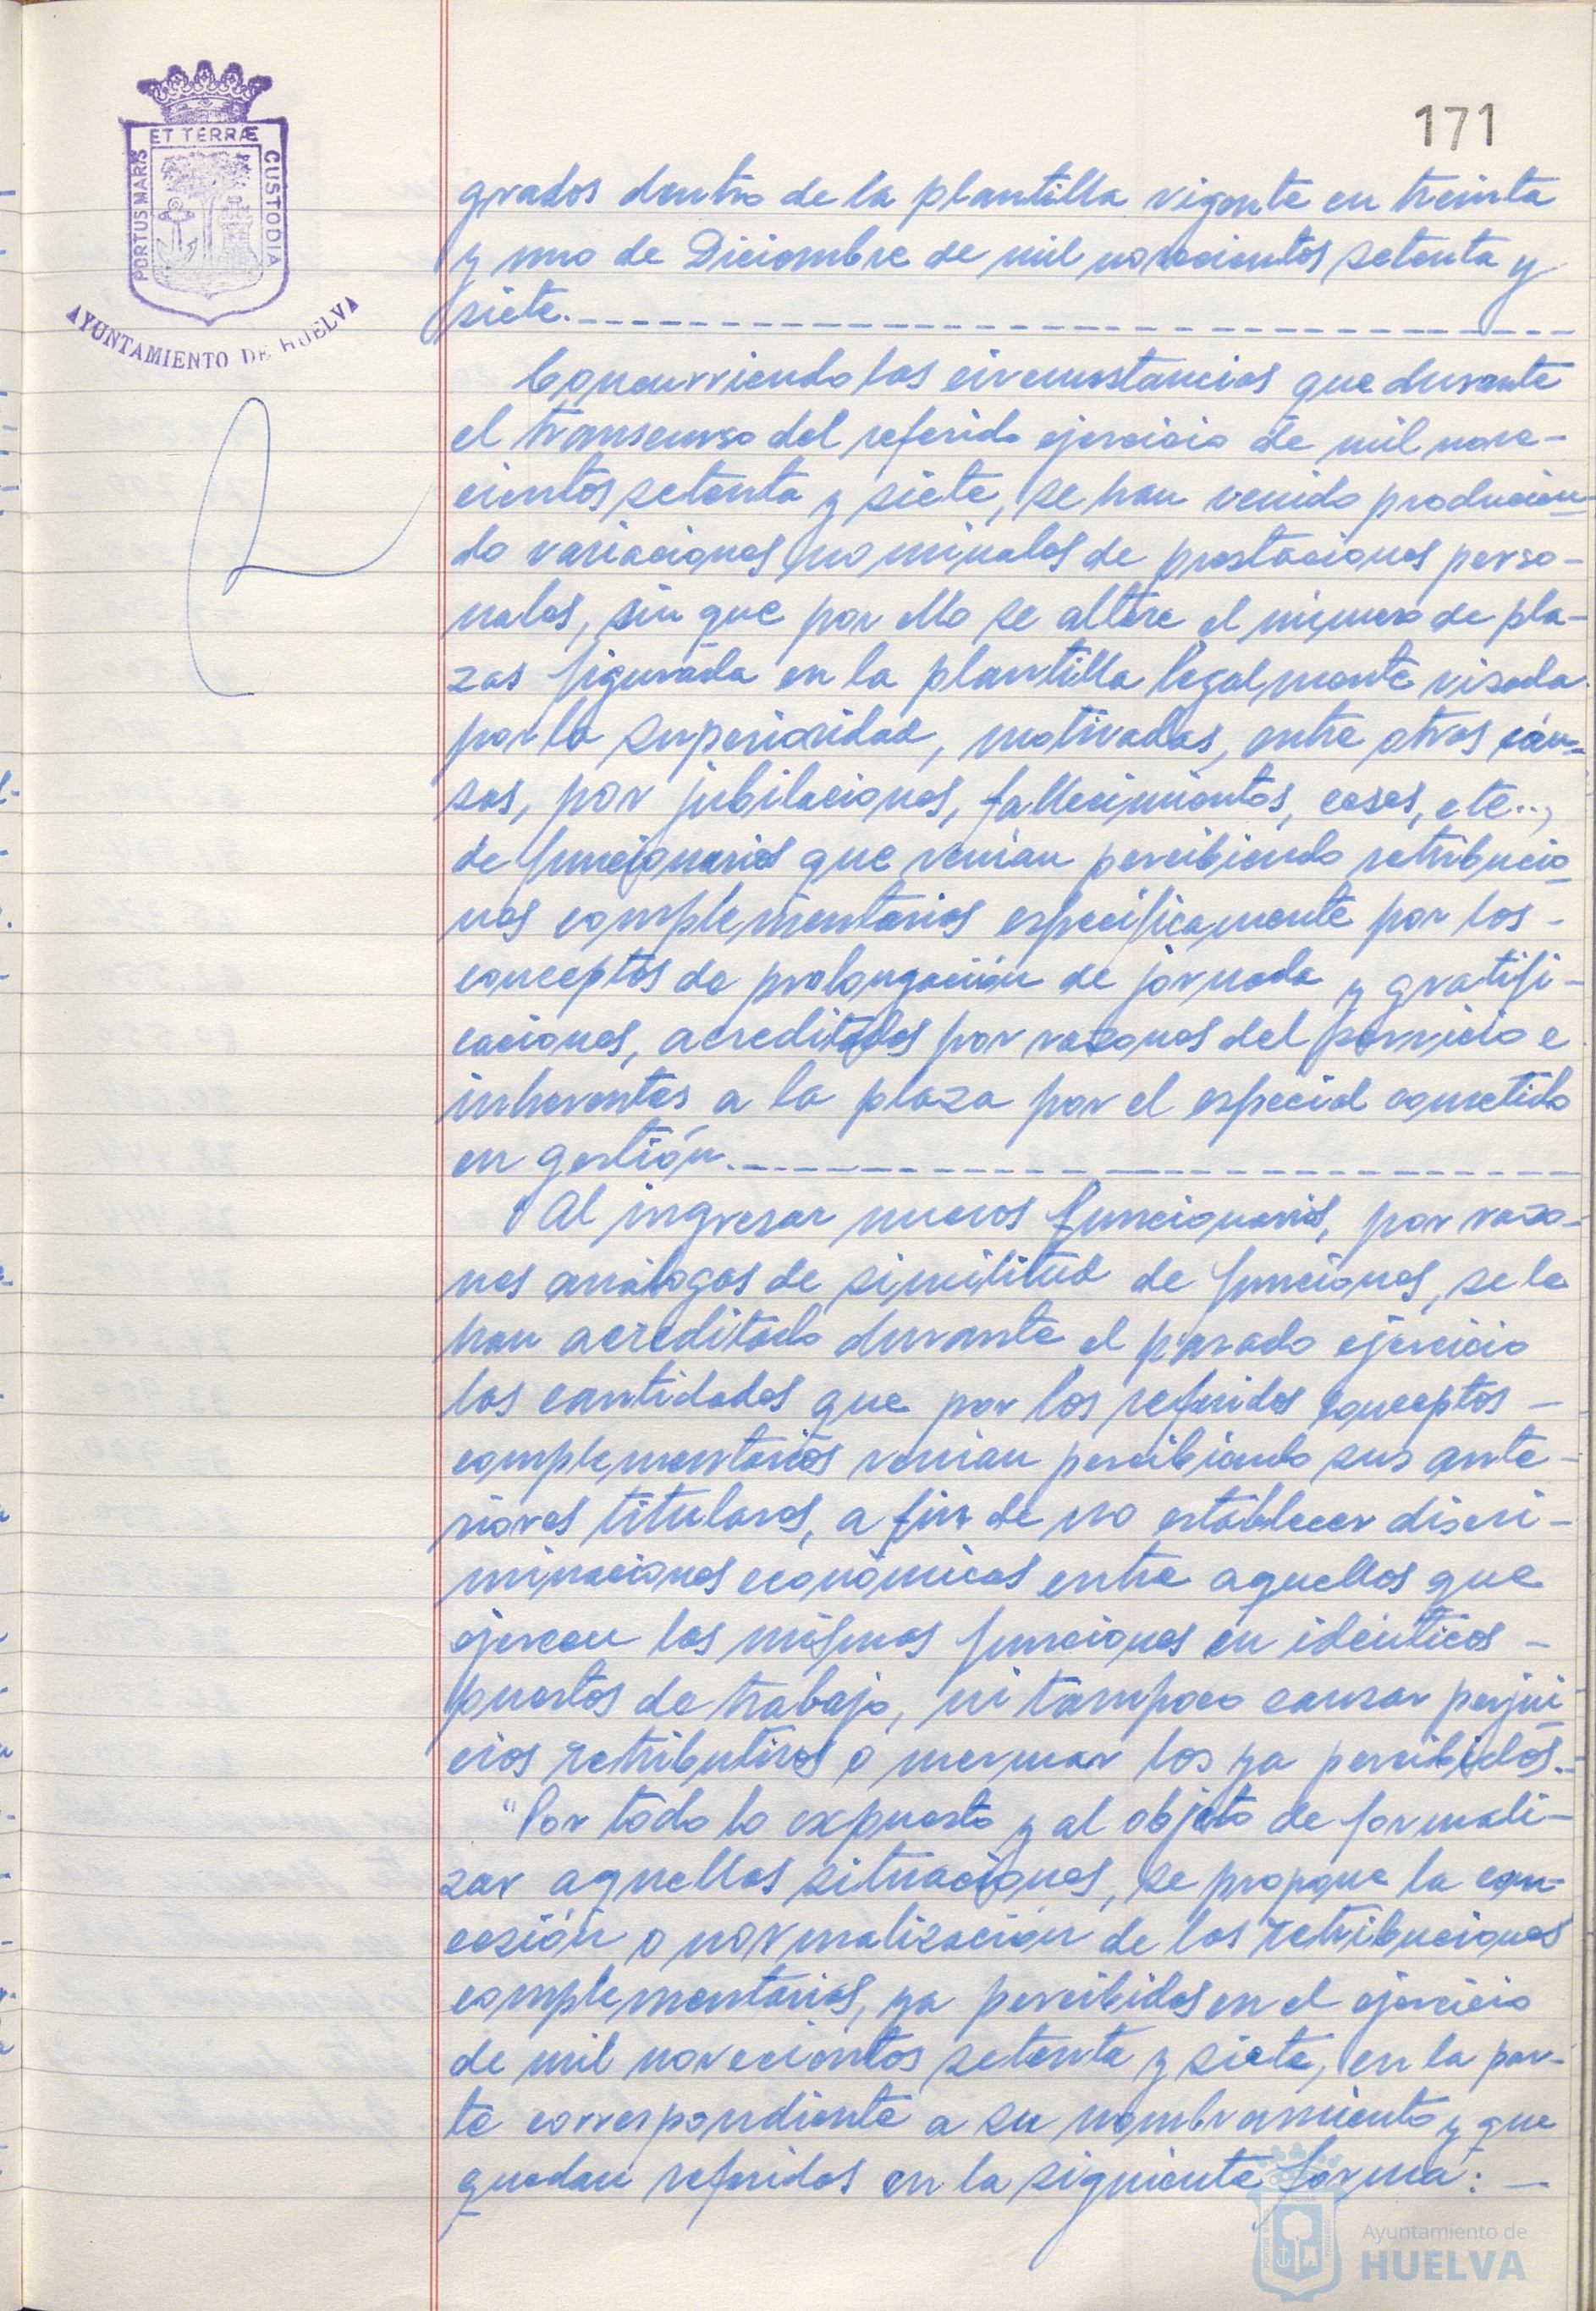 171
ET TERRÆ
PORTUS MARIS
CUSTODIA
AYUNTAMIENTO DE HUELVA
grados dentro de la plantilla vigente en treinta
y uno de Diciembre de mil novecientos setenta y
siete.
Concurriendo las circunstancias que durante
el transcurso del referido ejercicio de mil nove-
cientos setenta y siete, se han venido producien-
do variaciones nominales de prestaciones perso-
nales, sin que por ello se altere el número de pla-
zas figurada en la plantilla legalmente visada
por la superioridad, motivadas, entre otras cau-
sas, por jubilaciones, fallecimientos, ceses, etc..,
de funcionarios que venian percibiendo retribucio-
nes complementarias especificamente por los -
conceptos de prolongación de jornada y gratifi-
caciones, acreditados por razones del servicio e
inherentes a la plaza por el especial cometido
en gestión.
Al ingresar nuevos funcionarios, por razo-
nes análogas de similitud de funciones, se le
han acreditado durante el pasado ejercicio
las cantidades que por los referidos conceptos -
complementarios venian percibiendo sus ante-
riores titulares, a fin de no establecer discri-
minaciones económicas entre aquellos que
ejercen las mismas funciones en identicos -
puestos de trabajo, ni tampoco causar perjui-
cios retributivos o mermar los ya percibidos.-
"Por todo lo expuesto y al objeto de formali-
zar aquellas situaciones, se propone la con-
cesión o normalización de las retribuciones
complementarias, ya percibidas en el ejercicio
de mil novecientos setenta y siete, en la par-
te correspondiente a su nombramiento y que
quedan referidas en la siguiente forma: -
Ayuntamiento de
HUELVA